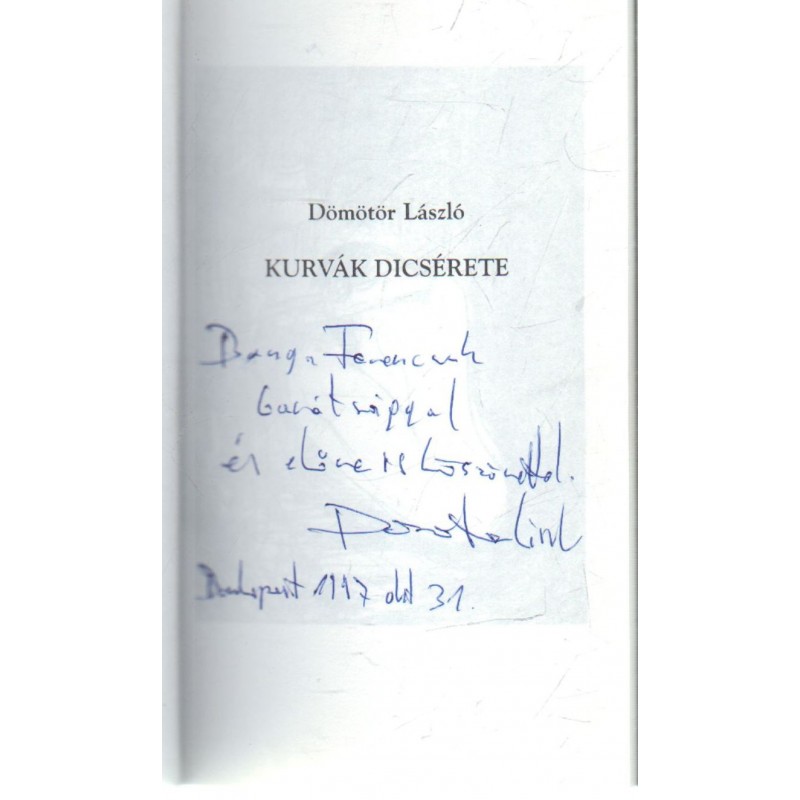 Dömötör László
KURVÁK DICSÉRETE
Banga Ferencnek
barátsággal
és előre is köszönettel.
Budapest 1997 okt 31.